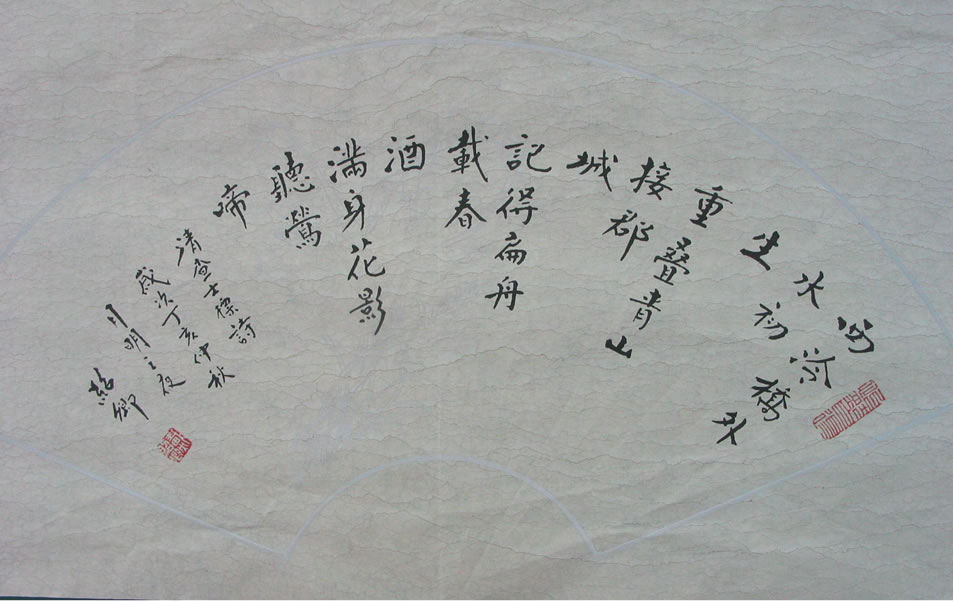 橋外
水初
生
重叠青山
接郡
城
記得扁舟
載春
酒
滿身花影
聽鶯
啼
清查士標詩
歲次丁亥仲秋
月明之夜
卿